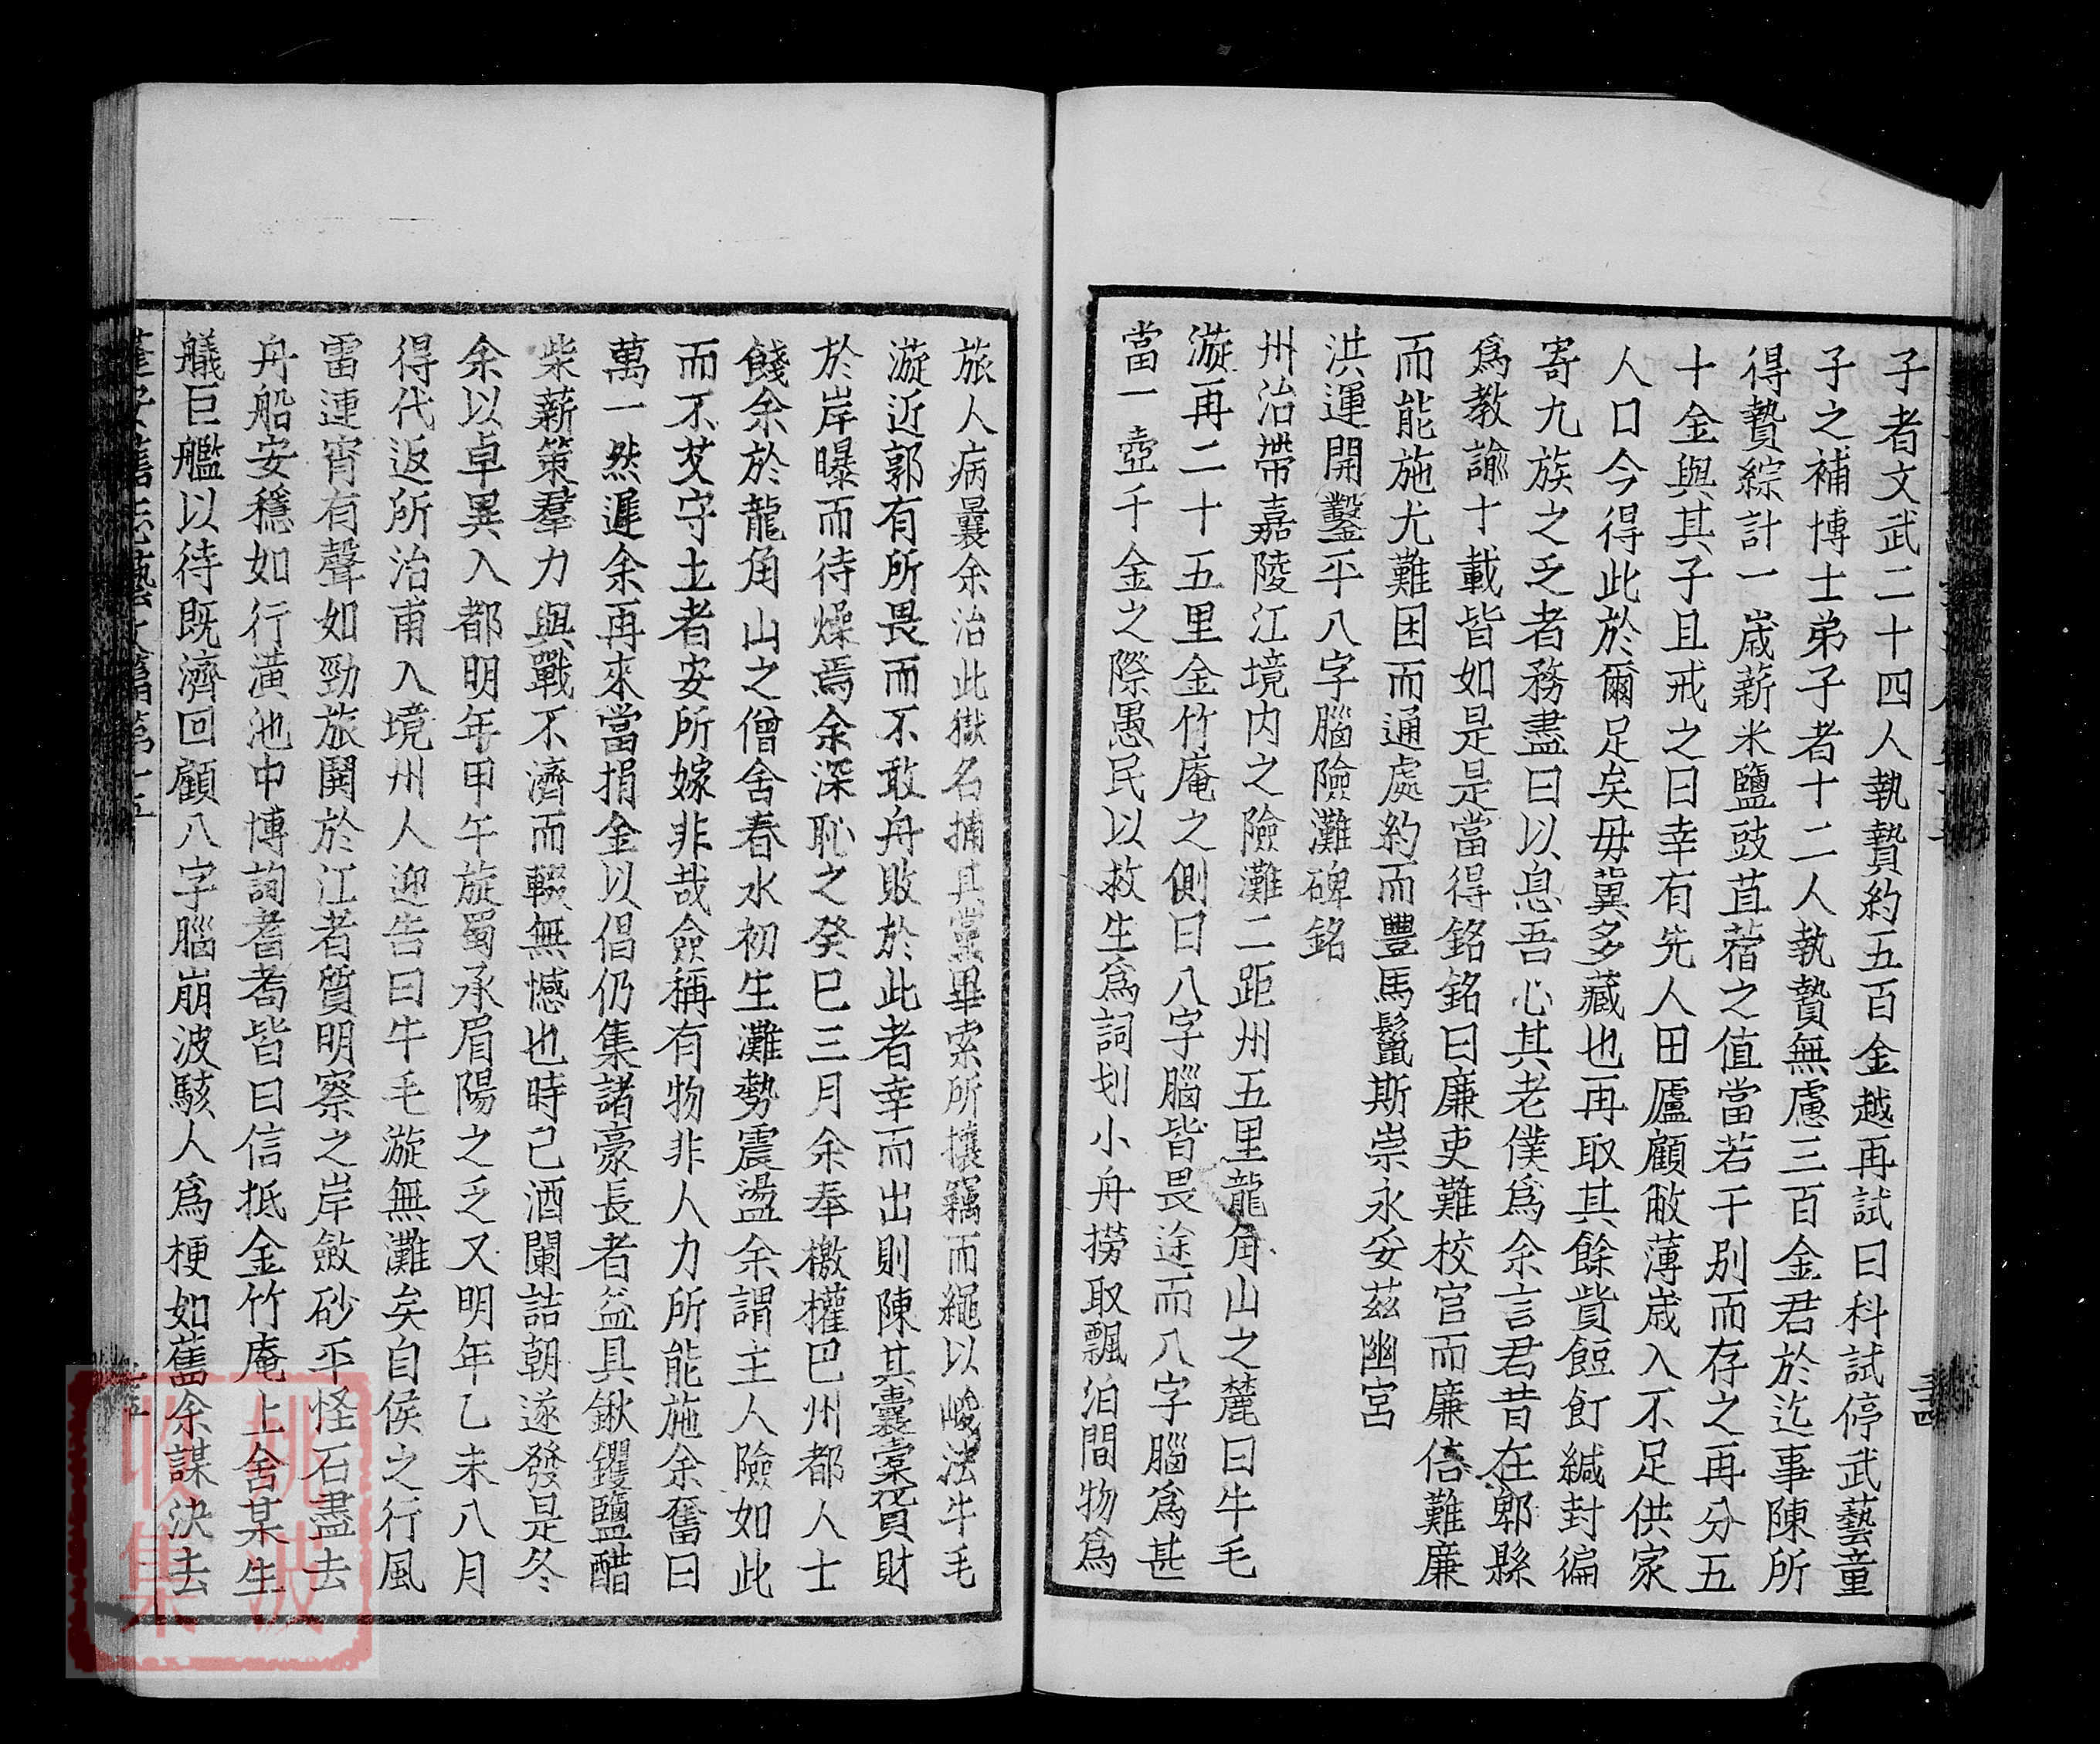 子者文武二十四人執贄約五百金越再試曰科試停武藝童
子之補博士弟子者十二人執贄無慮三百金君於迄事陳所
得贄綜計一歲薪米鹽豉苴蓿之值當若干別而存之再分五
十金與其子且戒之曰幸有先人田廬顧敝薄歲入不足供家
人口今得此於爾足矣毋冀多藏也再取其餘貲餖飣緘封徧
寄九族之乏者務盡曰以息吾心其老僕爲余言君昔在郫縣
爲教諭十載皆如是是當得銘銘曰廉吏難校官而廉倍難廉
而能施尤難困而通處約而豐馬鬣斯崇永妥茲幽宮
洪運開鑿平八字腦險灘碑銘
州治帶嘉陵江境内之險灘二距州五里龍角山之麓曰牛毛
漩再二十五里金竹庵之側曰八字腦皆畏途而八字腦爲甚
當一壺千金之際愚民以救生爲詞划小舟撈取飄泊間物爲
旅人病曩余治此獄名捕其黨畢索所攘竊而繩以峻法牛毛
漩近郭有所畏而不敢舟敗於此者幸而出則陳其囊橐貨財
於岸曝而待燥焉余深恥之癸巳三月余奉檄權巴州都人士
餞余於龍角山之僧舍春水初生灘勢震盪余謂主人險如此
而不芟守土者安所嫁非哉僉稱有物非人力所能施余奮曰
萬一然遲余再來當捐金以倡仍集諸豪長者益具鍬钁鹽醋
柴薪策羣力與戰不濟而輟無憾也時已酒闌詰朝遂發是冬
余以卓異入都明年甲午旋蜀承眉陽之乏又明年乙未八月
得代返所治甫入境州人迎告曰牛毛漩無灘矣自侯之行風
雷連宵有聲如勁旅鬨於江者質明察之岸斂砂平怪石盡去
舟船安穩如行潢池中博詢耆耇皆曰信抵金竹庵上舍某生
艤巨艦以待既濟回顧八字腦崩波駭人爲梗如舊余謀決去
三十四
姚波
收集